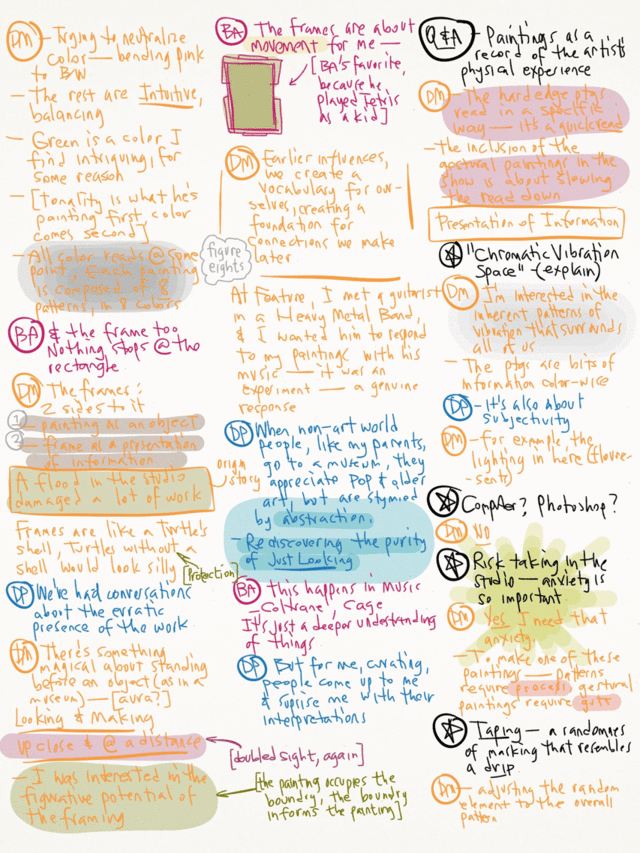 DM - Trying to neutralize
color — bending pink
to BW
- The rest are Intuitive,
balancing
- Green is a color I
find intriguing, for
some reason
- [tonality is what he's
painting first, color
comes second]
- All color reads @ some
point. Each painting
is composed of 8
patterns, in 8 colors
figure
eights
BA & the frame too
Nothing stops @ the
rectangle
DM The frames:
2 sides to it
1 - painting as an object
2 - frame as a presentation
of information
A flood in the studio
damaged a lot of work
origin
story
Frames are like a Turtle's
shell, Turtles without a
shell would look silly
[Protection]
DP We've had conversations
about the erratic
presence of the work
DM There's something
magical about standing
before an object (as in a
museum) — [aura?]
Looking & Making
up close & @ a distance
[doubled sight, again]
- I was interested in the
figurative potential of
the framing
[the painting occupies the
boundry, the boundry
informs the painting]
BA The frames are about
movement for me —
[BA's favorite,
because he
played Tetris
as a kid]
DM Earlier influences,
we create a
vocabulary for our-
selves, creating a
foundation for
connections we make
later
At Feature, I met a guitarist
in a Heavy Metal Band,
& I wanted him to respond
to my paintings with his
music — it was an
experiment — a genuine
response
DP When non-art world
people, like my parents,
go to a museum, they
appreciate Pop & older
art, but are stymied
by abstraction.
- Rediscovering the purity
of Just Looking
BA this happens in Music
- Coltrane, Cage
It's just a deeper understanding
of things
DP But for me, curating,
people come up to me
& suprise me with their
interpretations
Q&A - Paintings as a
record of the artist's
physical experience
DM - The hard edge ptgs
read in a specific
way — it's a quick read
- the inclusion of the
gestural paintings in the
show is about slowing
the read down
Presentation of Information
"Chromatic Vibration
Space" - (explain)
DM I'm interested in the
inherent patterns of
vibration that surrounds
all of us
- The ptgs are bits of
information color-wise
DP - It's also about
subjectivity
DM - for example, the
lighting in here (floure-
sent)
Computer? Photoshop?
DM No
Risk taking in the
studio — anxiety is
so important
DM - Yes I need that
anxiety.
- To make one of these
paintings — patterns
require process, gestural
paintings require guts
Taping — a randomnes
of masking that resembles
a drip.
DM - adjusting the random
element to the overall
pattern